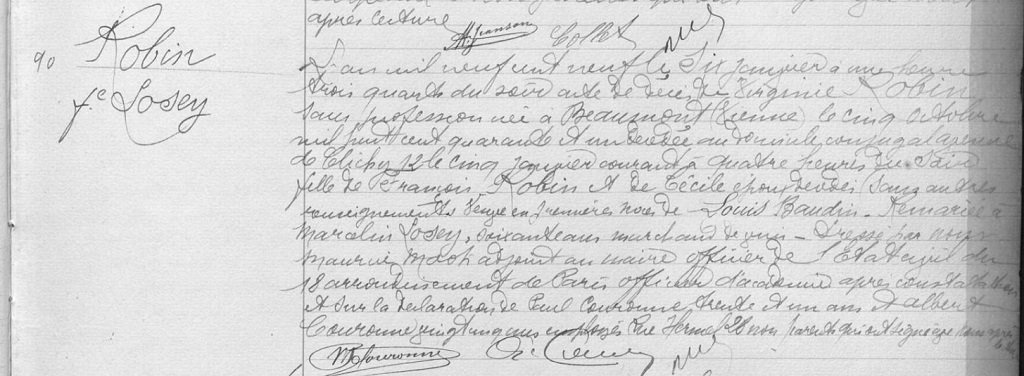 après lecture
Collet
90 Robin
fe Losey
L'an mil neuf cent neuf le Six janvier à une heure
trois quarts du soir acte de décès de Virginie Robin
sans profession née à Beaumont (Vienne) le cinq octobre
mil huit cent quarante et un décédée au domicile conjugal avenue
de Clichy 12 le cinq janvier courant à quatre heures du Soir
fille de François Robin et de Cécile époux décédés Sans autres
renseignements Veuve en premières noces de Louis Baudin. Remariée à
Marcelin Losey, soixante ans marchand de vins - Dressé par nous
Maurice adjoint au maire officier de l'Etat civil du
18 arrondissement de Paris officier d'académie après constatation
et sur la déclaration de Paul Couronne trente et un ans et albert
Couronne vingt cinq ans employés Rue Hermel 28 non parents qui ont signé avec nous après
Couronne